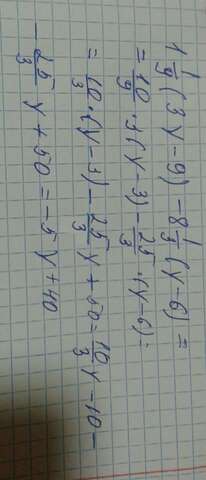 1 1/9 (3y-9) - 8 1/3 (y-6) =
= 10/9 · 3 (y-3) - 25/3 · (y-6) =
= 10/3 · (y-3) - 25/3 y + 50 = 10/3 y - 10 -
- 25/3 y + 50 = -5y + 40